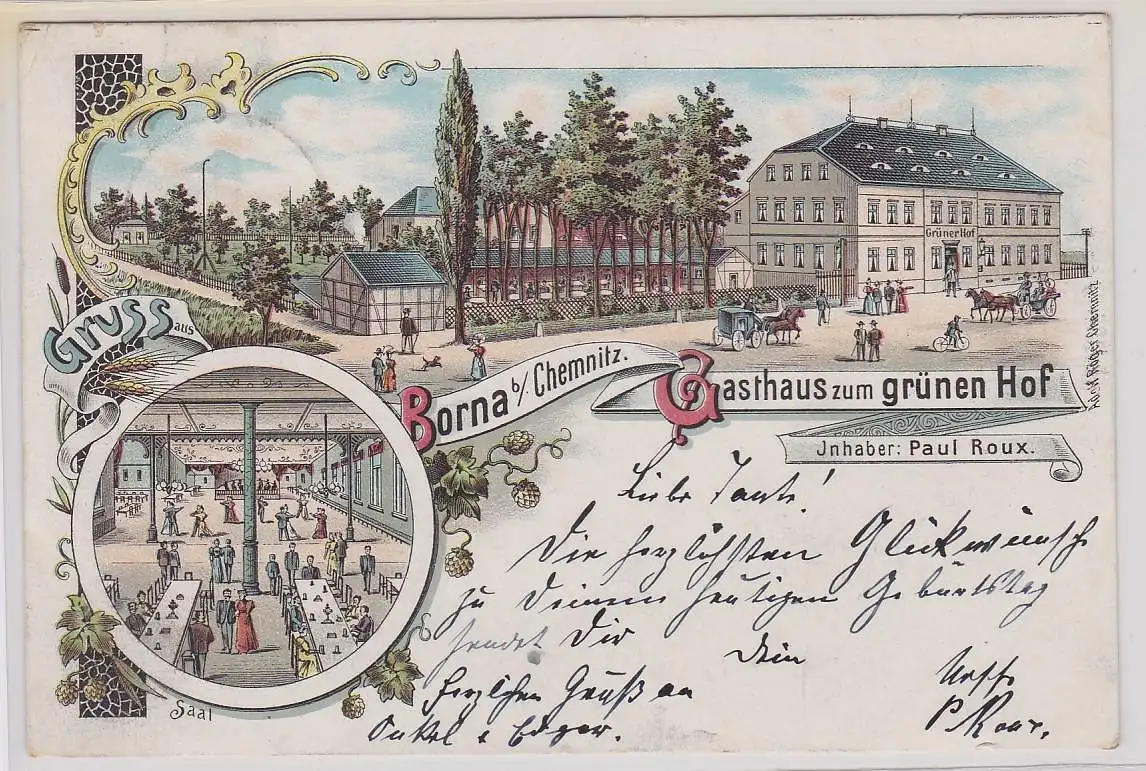 Gruss aus
Borna b/. Chemnitz.
Gasthaus zum grünen Hof
Jnhaber: Paul Roux.
Grüner Hof
Saal
Liebe Tante!
Die herzlichsten Glückwünsche
zu Deinem heutigen Geburtstag
sendet Dir Dein
Neffe
P. Roux.
Herzlichen Gruß an
Onkel & Edgar.